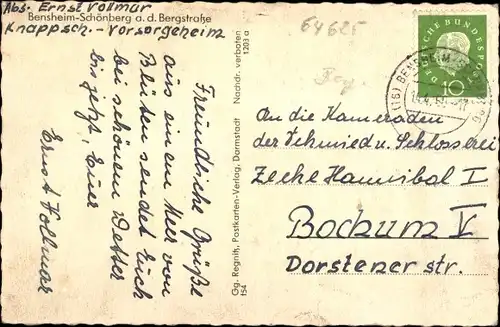 Abs. Ernst Vollmar
Bensheim-Schönberg a. d. Bergstraße
Knappsch.-Vorsorgeheim
Freundliche Grüße
aus einem Meer von
Blüten sendet Euch
bei schönem Wetter
bis jetzt, Euer
Ernst Vollmar
Gg. Regnift, Postkarten-Verlag, Darmstadt Nachdr. verboten
154 1203 a
64625
DEUTSCHE BUNDESPOST
10
(16) BENSHEIM
An die Kameraden
der Schmied u. Schlosserei
Zeche Hannibal I
Bochum V
Dorstener str.